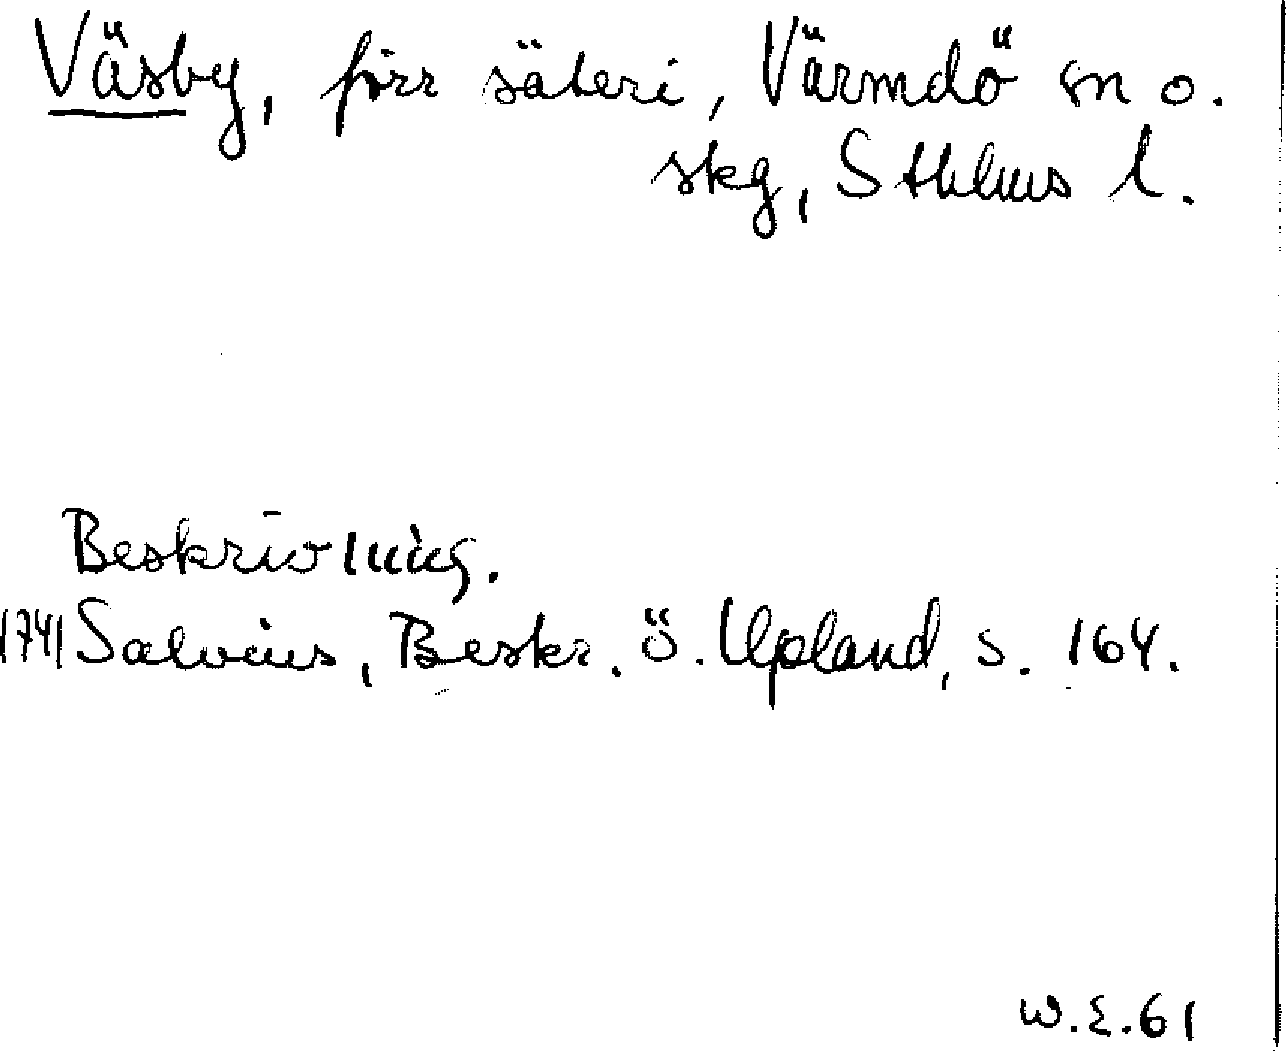 Väsby, förr säteri, Värmdö sn o.
skg, Sthlms l.
Beskrivning.
1741 Salvius, Beskr. ö. Upland, s. 164.
W.E.61